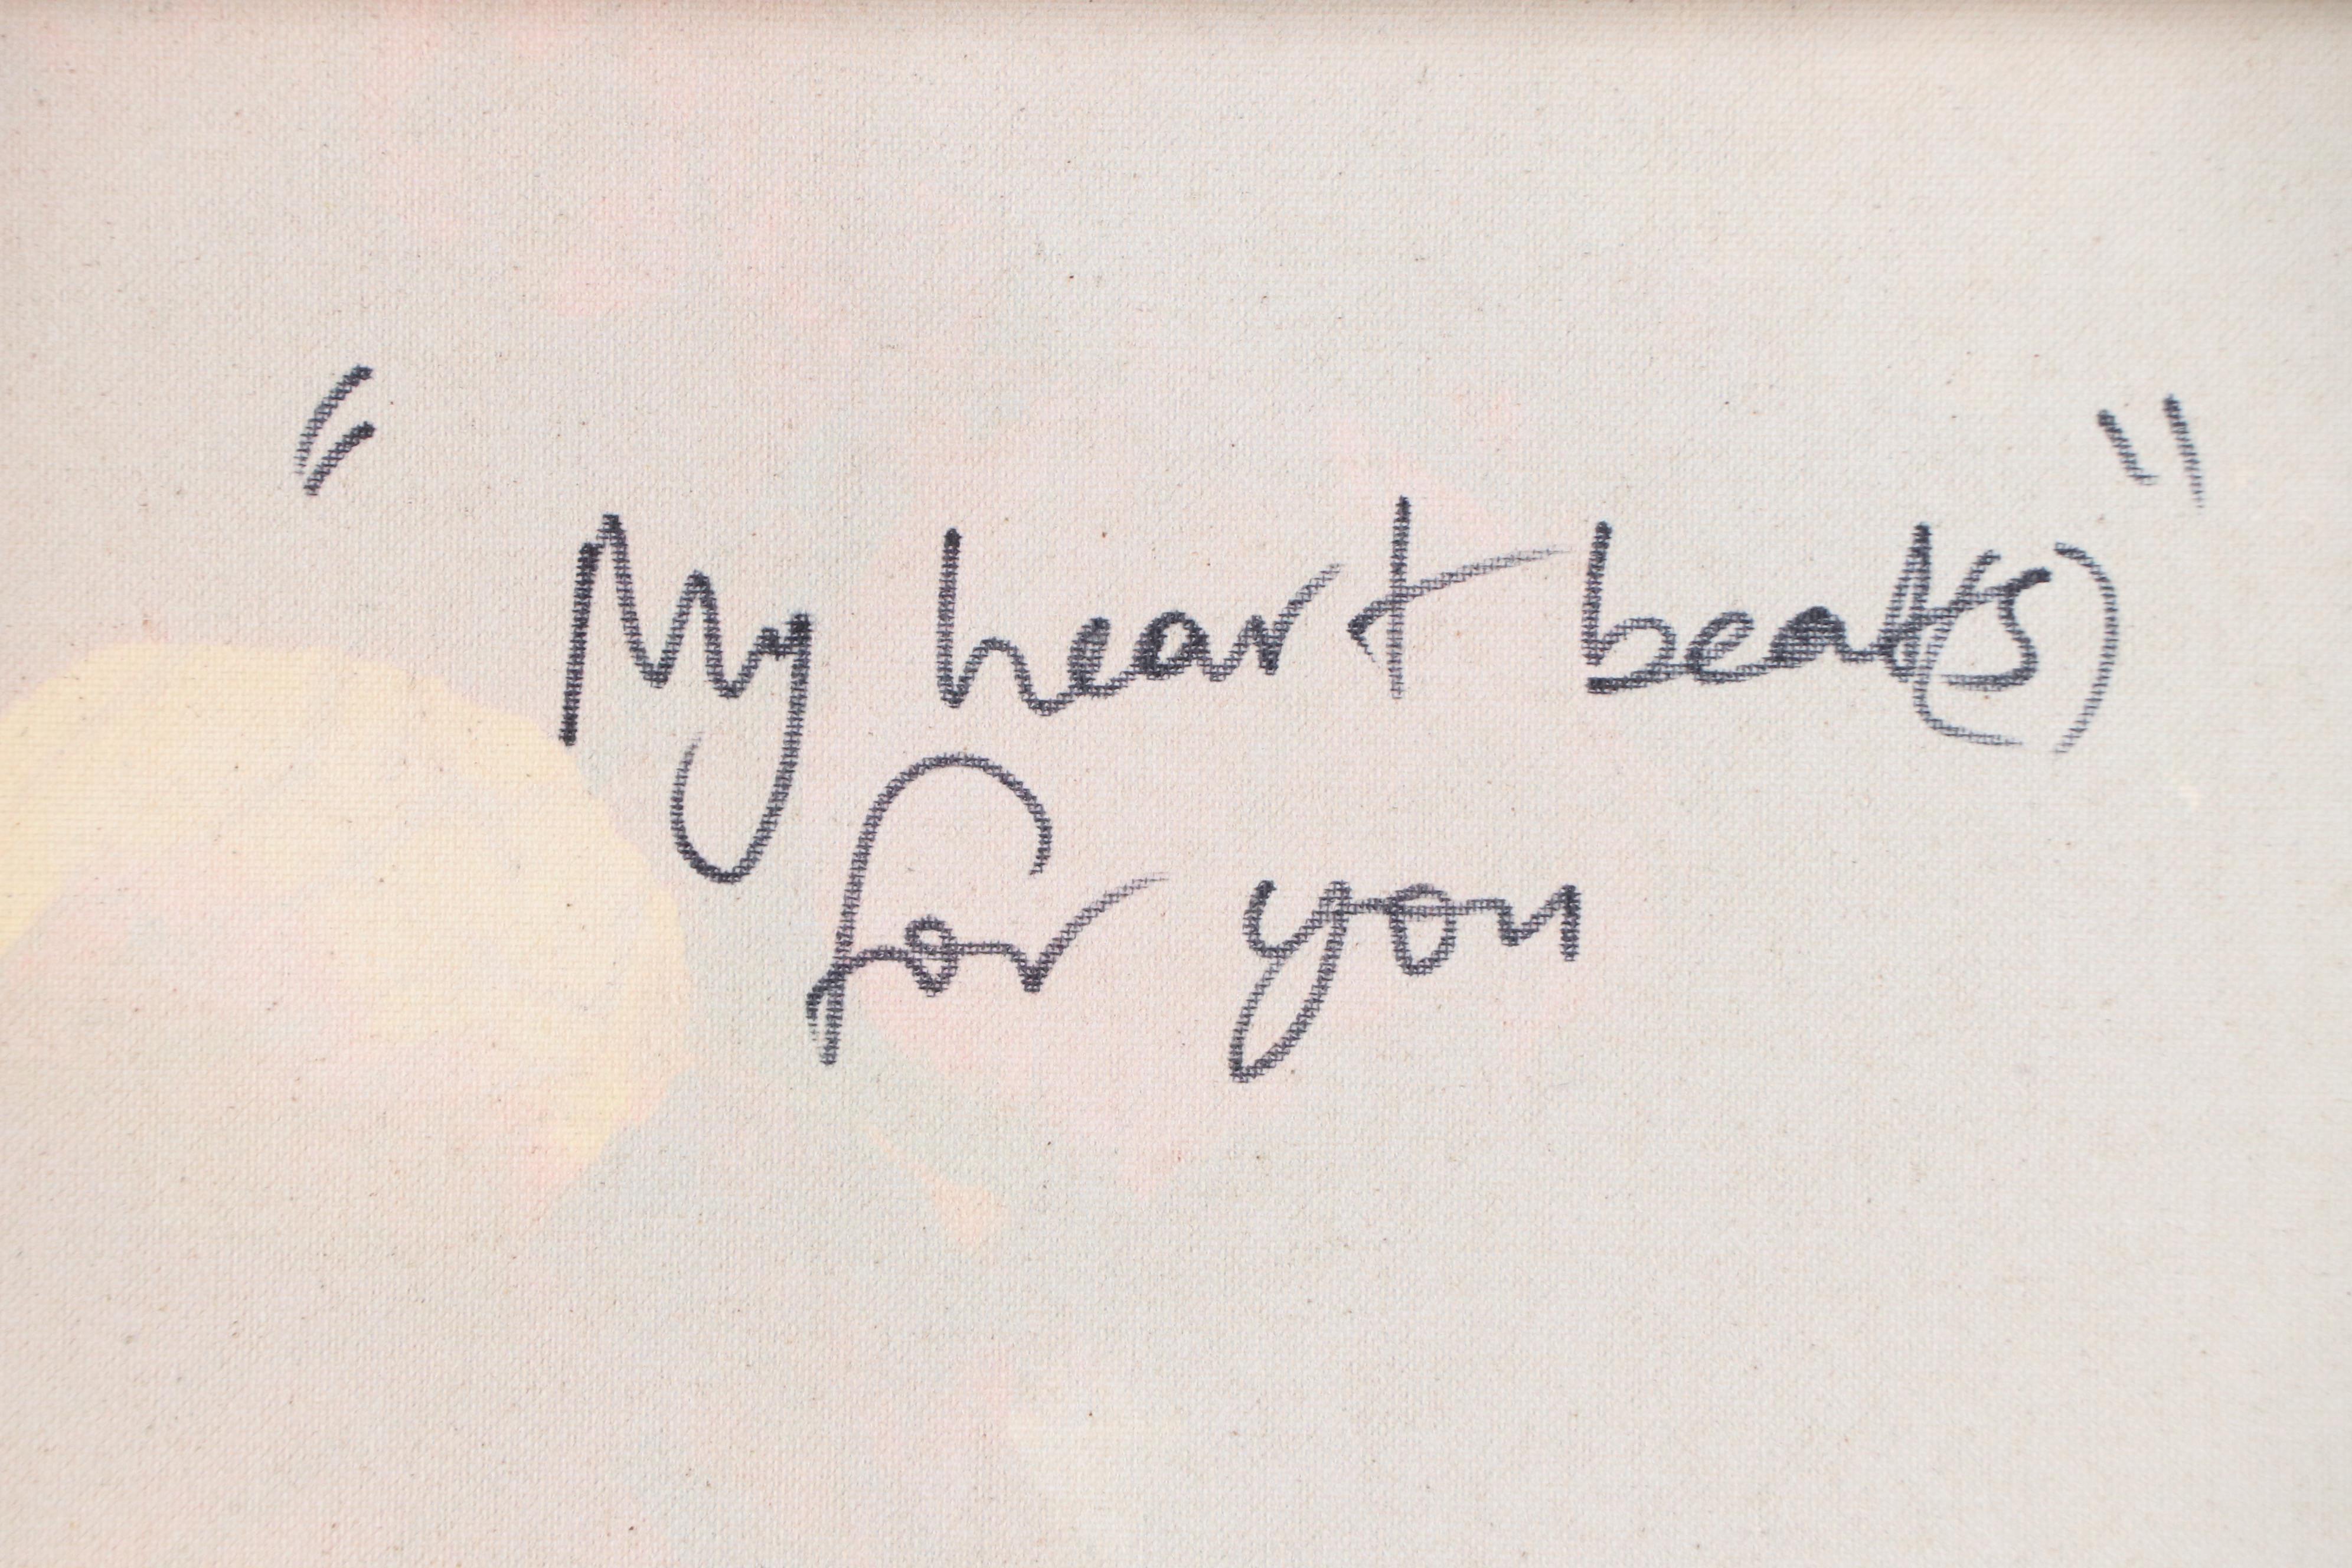 "My heart beat(s)"
for you